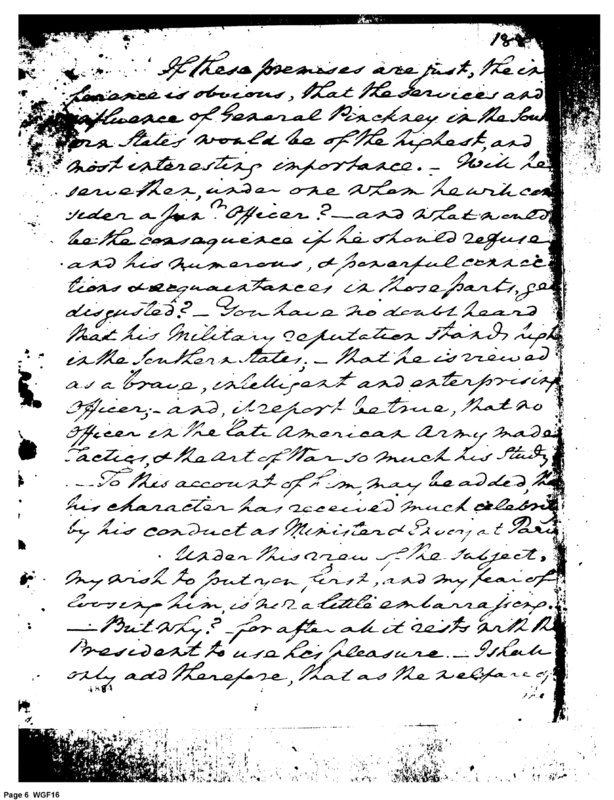 188
If these premises are just, the in
ference is obvious, that the services and
influence of General Pinckney in the South
ern States would be of the highest, and
most interesting importance. – Will he
serve then, under one whom he will con
sider a Junr. Officer? – and what would
be the consequence if he should refuse,
and his numerous, & powerful connec
tions & acquaintances in those parts, get
disgusted? – You have no doubt heard
that his Military reputation stands high
in the Southern States; – that he is viewed
as a brave, intelligent and enterprising
Officer; – and, if report be true, that no
Officer in the late American Army made
Tactics, & the art of War so much his Study.
– To this account of him, may be added, that
his character has received much celebrity
by his conduct as Minister & Envoy at Paris
Under this view of the subject,
my wish to put you first, and my fear of
loosing him, is not a little embarrassing.
– But why? for after all it rests with the
President to use his pleasure. – I shall
only add therefore, that as the welfare of
4884
the
Page 6 WGF16